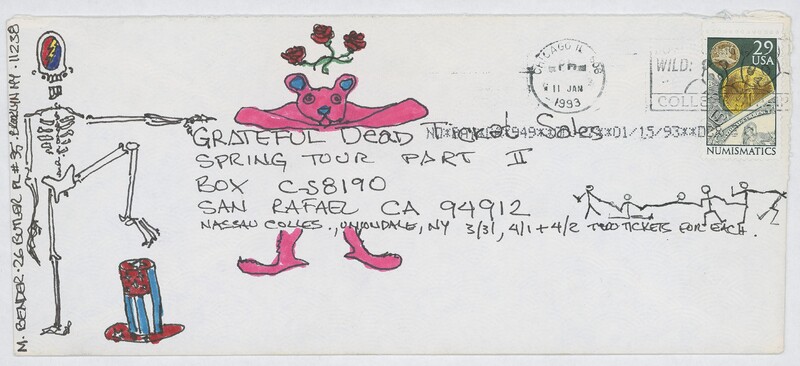 M. BENDER · 26 BUTLER PL #35 · BROOKLYN NY · 11238
CHICAGO IL
PM
11 JAN
1993
WILD:
29
USA
NUMISMATICS
GRATEFUL Dead Ticket Sales
01/15/93
SPRING TOUR PART II
BOX CS8190
SAN RAFAEL CA 94912
NASSAU COLLES., UNIONDALE, NY 3/31, 4/1 + 4/2 TWO TICKETS FOR EACH.